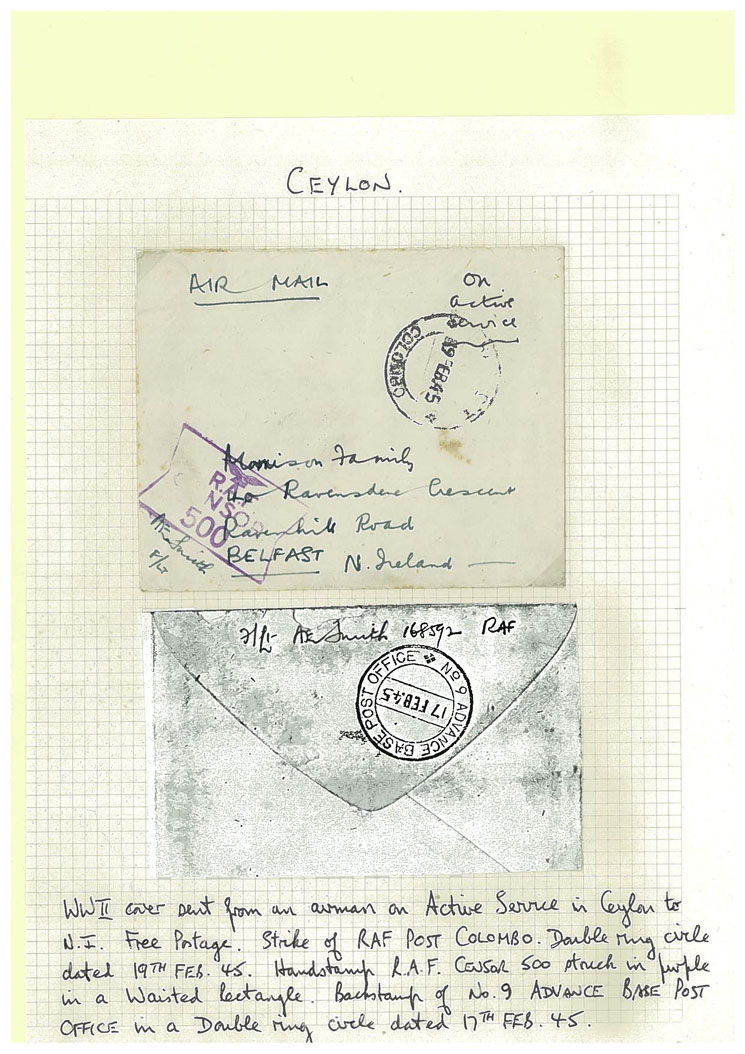 CEYLON.
AIR MAIL
On
active
service
COLOMBO
19 FEB 45
Morrison Family
Ravensdene Crescent
R.A.F.
CENSOR
500
Ravenhill Road
BELFAST N. Ireland —
AE Smith
F/Lt
F/Lt AE Smith 168592 RAF
No 9 ADVANCE BASE POST OFFICE
17 FEB 45
WW II cover sent from an airman on Active Service in Ceylon to
N.I. Free Postage. Strike of RAF POST COLOMBO. Double ring circle
dated 19TH FEB. 45. Handstamp R.A.F. CENSOR 500 struck in purple
in a Waisted Rectangle. Backstamp of No. 9 ADVANCE BASE POST
OFFICE in a Double ring circle dated 17TH FEB. 45.